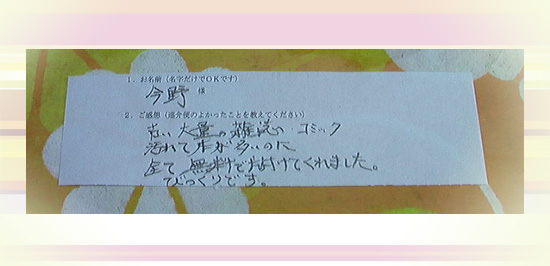 1．お名前（名字だけでOKです）
今野 様
2．ご感想（遺介便のよかったことを教えてください）
古い大量の雑誌 コミック
汚れて本が多いのに
全て無料で片付けてくれました。
びっくりです。